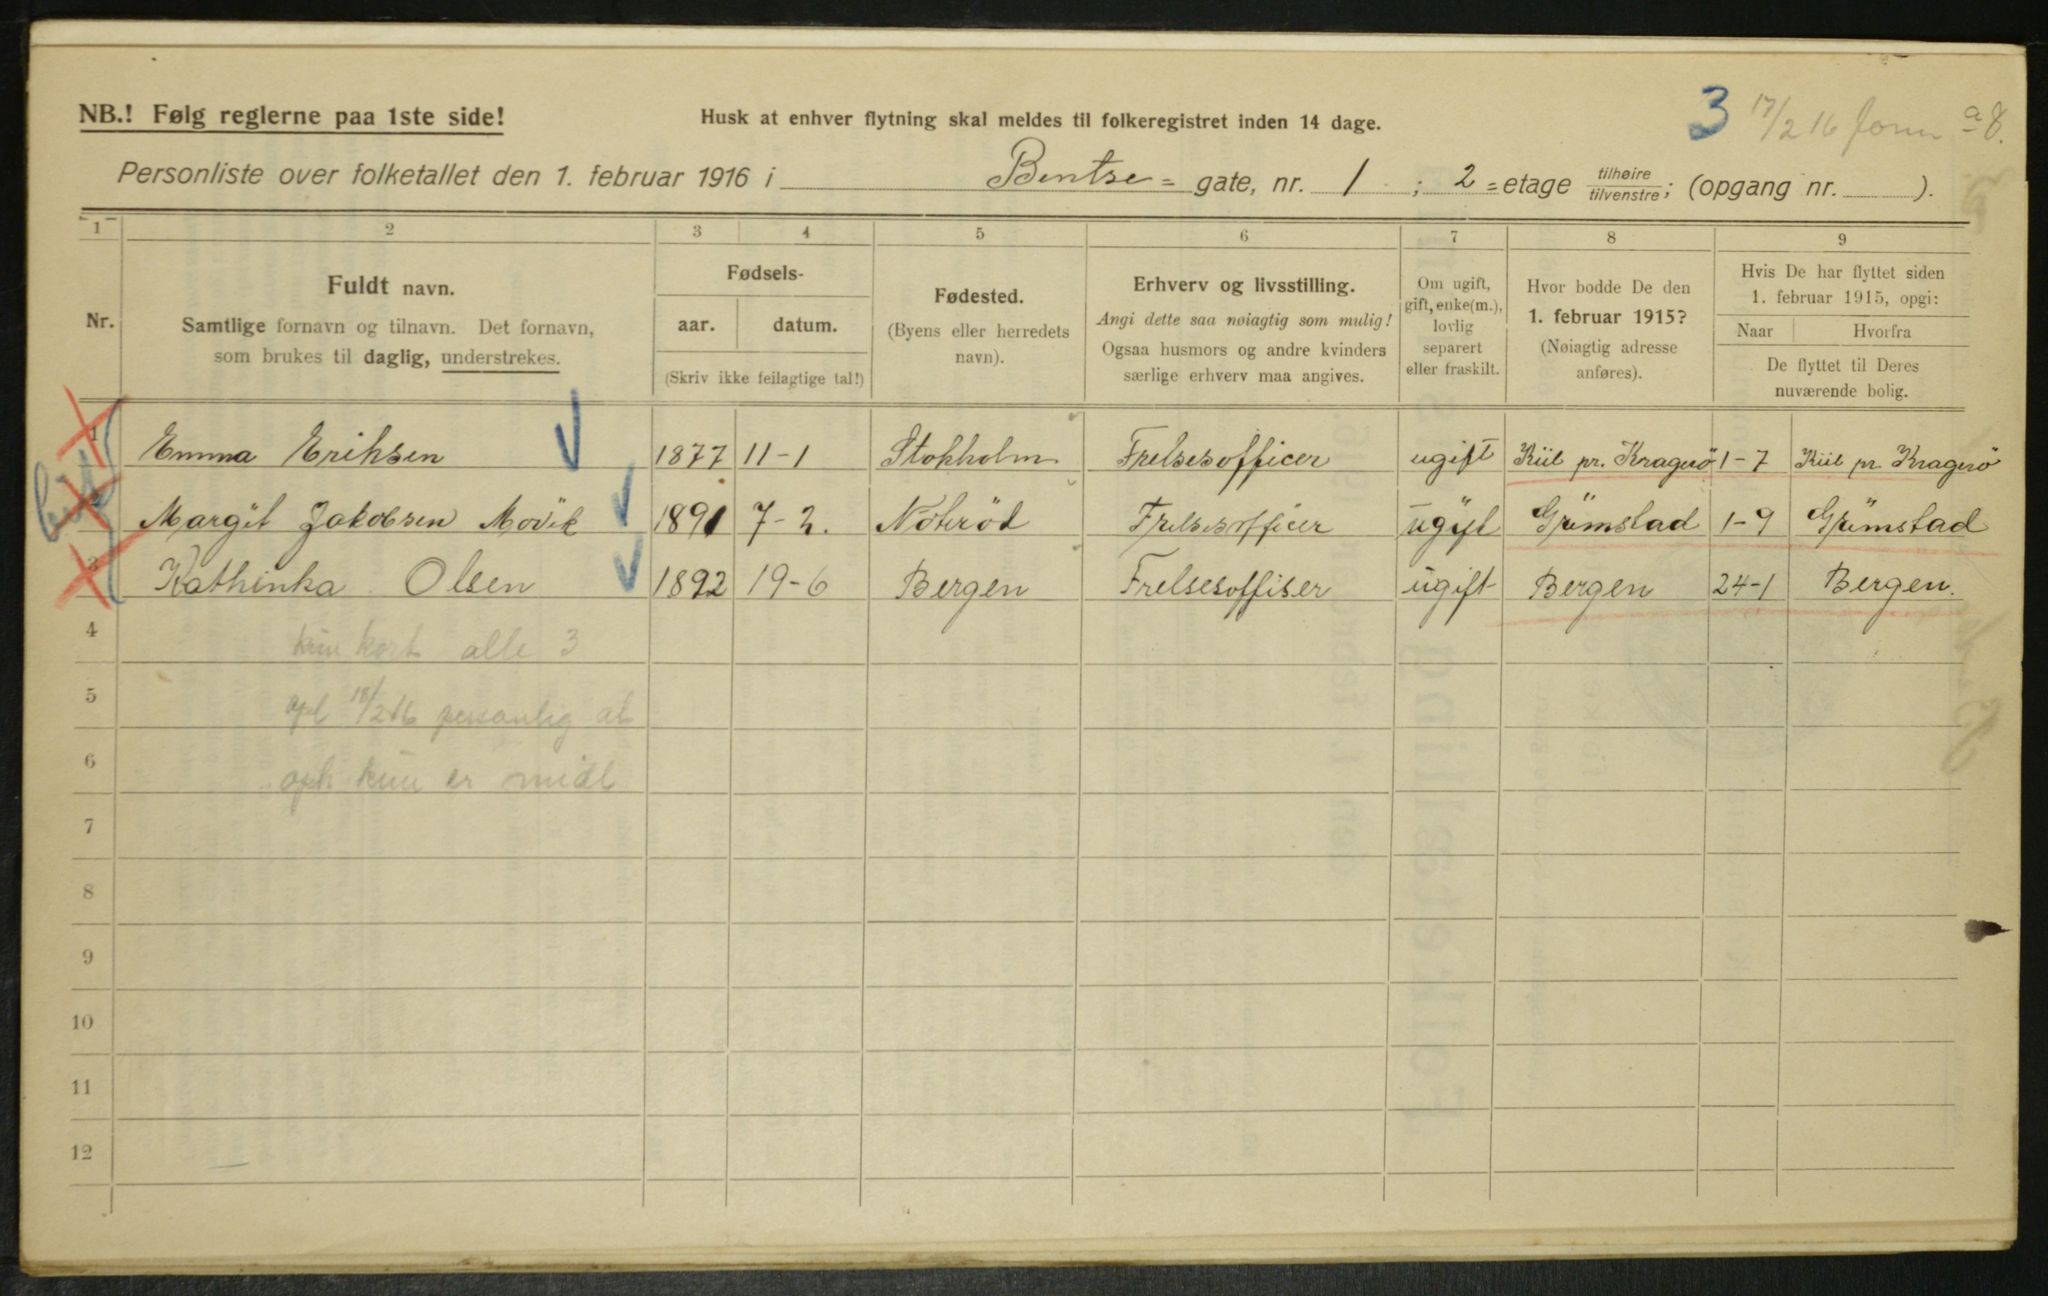 NB.! Følg reglerne paa 1ste side!
Husk at enhver flytning skal meldes til folkeregistret inden 14 dage.
3 17/2 16
Personliste over folketallet den 1. februar 1916 i Bentse = gate, nr. 1 ; 2 = etage tilhøire/tilvenstre; (opgang nr. ).
1 2 3 4 5 6 7 8 9
Nr.
Fuldt navn.
Samtlige fornavn og tilnavn. Det fornavn,
som brukes til daglig, understrekes.
Fødsels-
aar. datum.
(Skriv ikke feilagtige tal!)
Fødested.
(Byens eller herredets
navn).
Erhverv og livsstilling.
Angi dette saa nøiagtig som mulig!
Ogsaa husmors og andre kvinders
særlige erhverv maa angives.
Om ugift,
gift, enke(m.),
lovlig
separert
eller fraskilt.
Hvor bodde De den
1. februar 1915?
(Nøiagtig adresse
anføres).
Hvis De har flyttet siden
1. februar 1915, opgi:
Naar Hvorfra
De flyttet til Deres
nuværende bolig.
1 Emma Eriksen 1877 11-1 Stokholm Frelsesofficer ugift Kiil pr. Kragerö 1-7 Kiil pr. Kragerö
2 Margit Jakobsen Movik 1891 7-2. Nötröd Frelsesofficer ugift Grimstad 1-9 Grimstad
3 Kathinka Olsen 1892 19-6 Bergen Frelsesoffiser ugift Bergen 24-1 Bergen.
4 kun kort alle 3
5 opl 18/2 16 personlig at
6 oph kun er midl
7
8
9
10
11
12